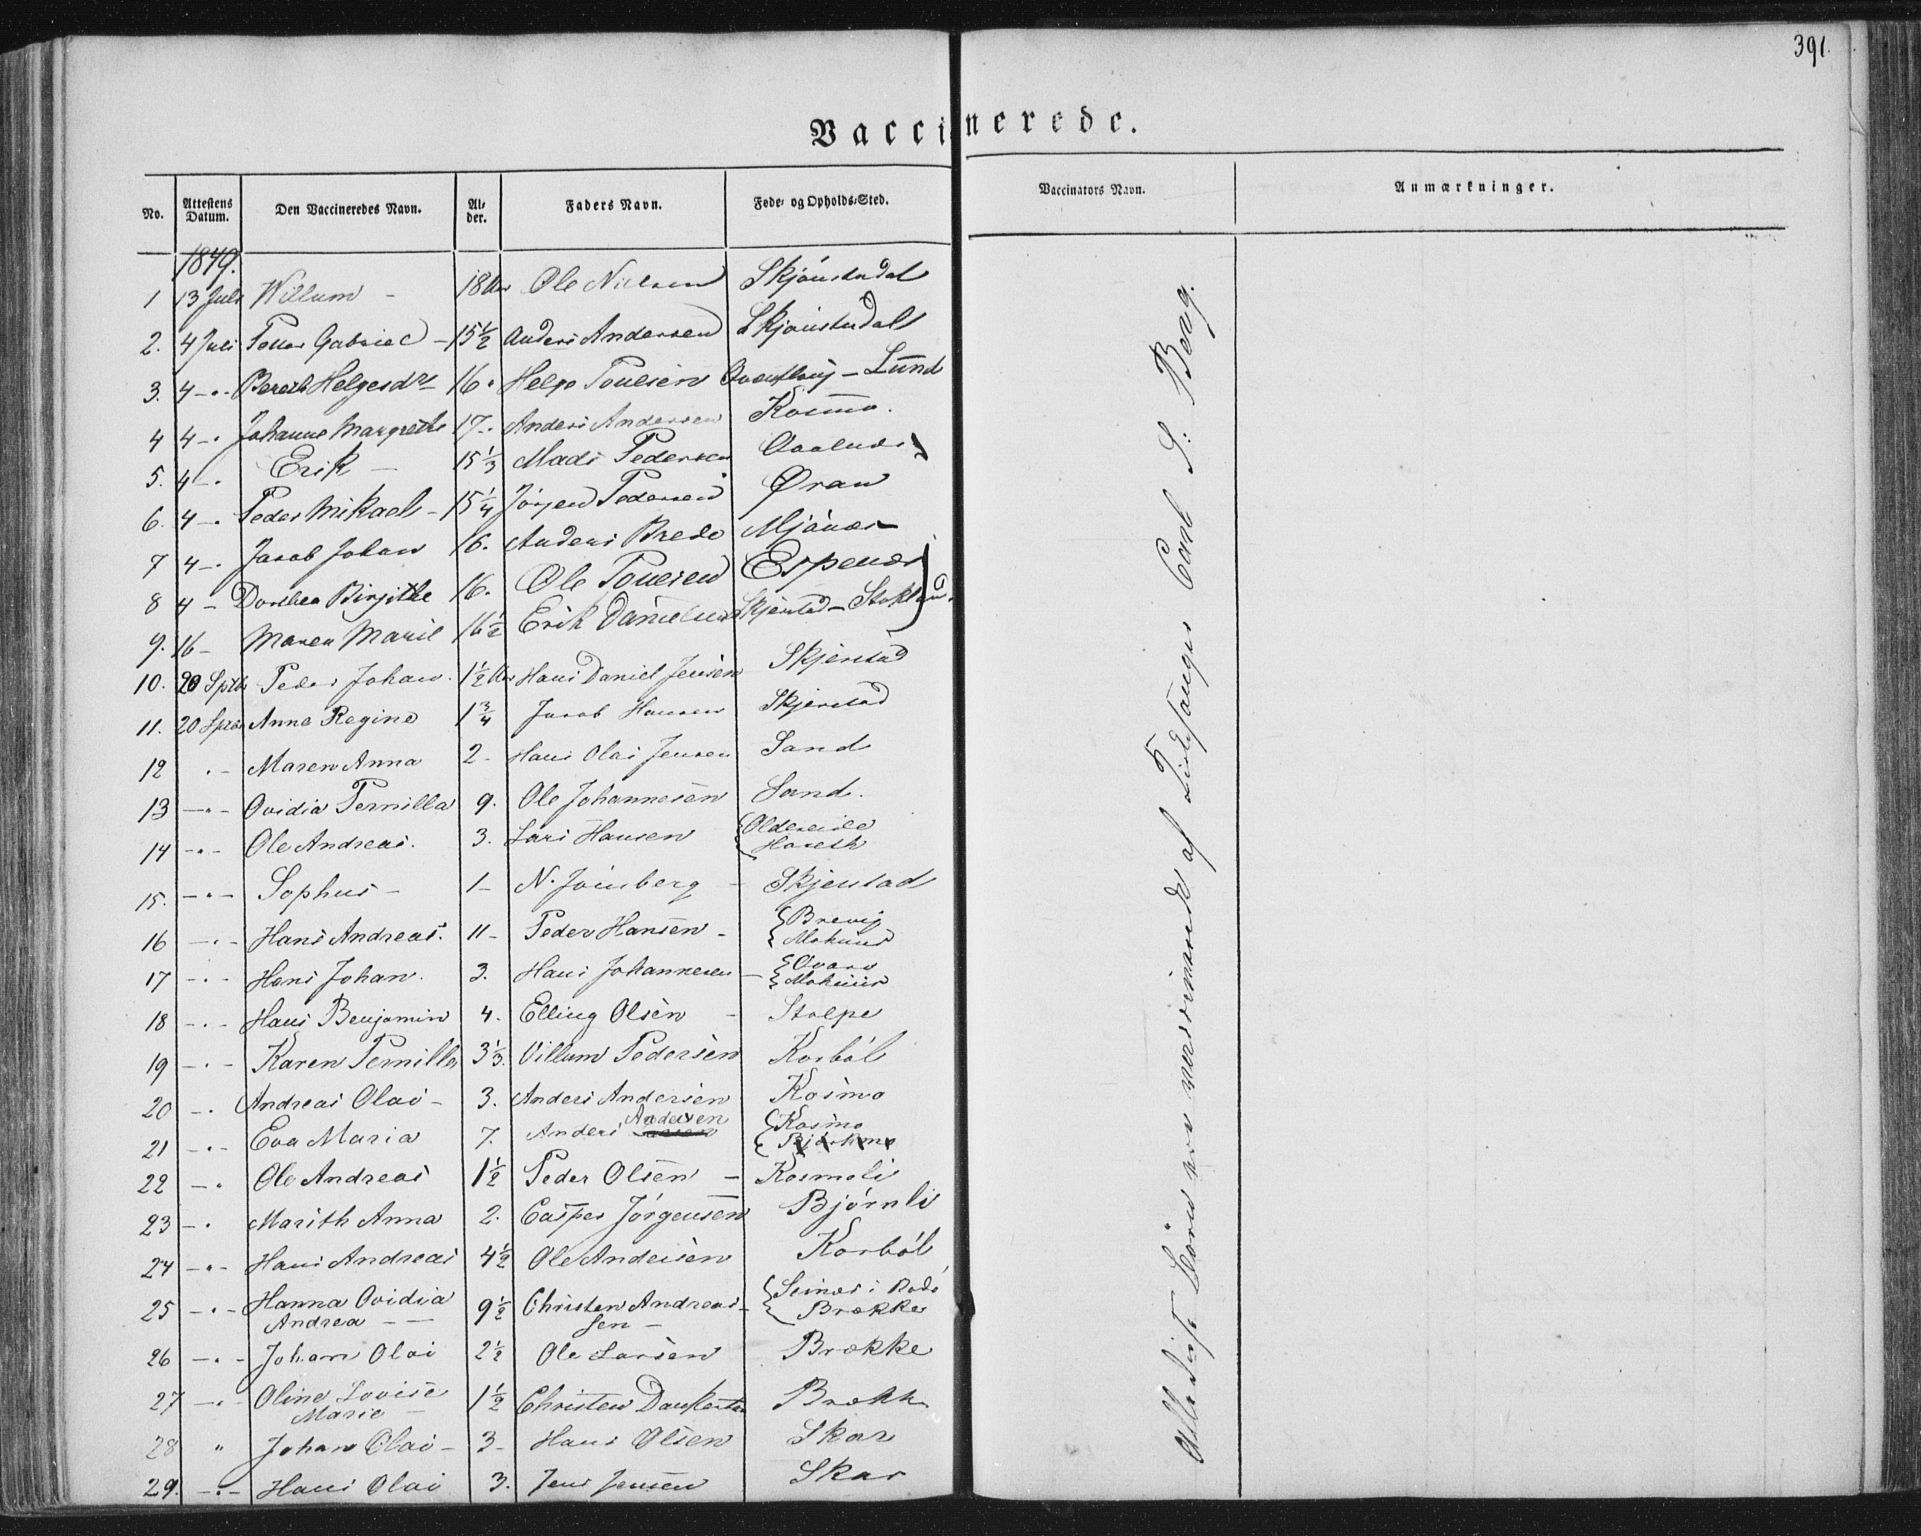 391.
Vaccinerede.
No. Attestens Datum. Den Vaccineredes Navn. Al-der. Faders Navn. Føde- og Opholds-Sted. Vaccinators Navn. Anmærkninger.
1849.
1 13 Juli Willum - 18 Aar Ole Nielsen Skjønstudal
2. 4 Juli Gabriel - 15½ Anders Andersen Skjønstudal
3. 4 - " Bereth Helgesdr 16 " Helge Lund
4 4 - " Johanne Margrethe 17 - Anders Andersen Kosmo.
5. 4 - " Erik - 15⅓ Mads Pedersen
6. 4 - " Peder Mikael - 15¼ Jørgen Pedersen Øran
7 4 - " Jacob Johan 16. Anders Brede Mjönes
8 4 - Dorthea Birgithe 16. Ole Espenes
9. 16 - Maren Marie 16½ Erik Danielsen Skjerstad - Stokland
10. 20 Sptbr Peder Johan. 1½ Aar Hans Daniel Jensen Skjerstad
11. 20 Sptbr Anne Regine 1¾ Jacob Hansen Skjerstad
12 " - Maren Anna 2 - Hans Olai Jensen Sand
13 - " - Ovidia Pernilla 9. Ole Johannesen Sand.
14 - " - Ole Andreas. 3. Lars Hansen { Oldereide
Hareth
15. - " - Sophus - 1 - N. Jöinberg - Skjerstad
16 - " - Hans Andreas. 11 - Peder Hansen - { Brevig
Moknes
17 - " - Hans Johan. 3. Hans Johannesen - { Qvarv
Moknes
18 - " - Hans Benjamin 4. Elling Olsen - Stolpe
19 - " - Karen Pernilla 3⅓. Villum Pedersen Korböl
20 - " Andreas Olai - 3. Anders Andersen Kosmo
21 - " - Eva Maria 7. Anders Andersen { Kosmo
22 - " Ole Andreas 1½ Peder Olsen - Kosmoli
23 - " Marith Anna 2. Casper Jörgensen Björnli
24 - " - Hans Andreas 4½ Ole Andersen Korböl
25 - " - Hanna Ovidia 9½ Christen Andreas- { Seines i Bodö
Andrea - - sen - Brække
26 - " - Johan Olai 2½ Ole Larsen Brække
27 - " - Oline Lovise 1½ Christen Dankertsen Brække
Marie -
28 " Johan Olai - 3 - Hans Olsen Skar
29. - " - Hans Olai 3. Jens Jensen Skar
Alle disse Börn ere vaccinerede af Carl S: Berg.